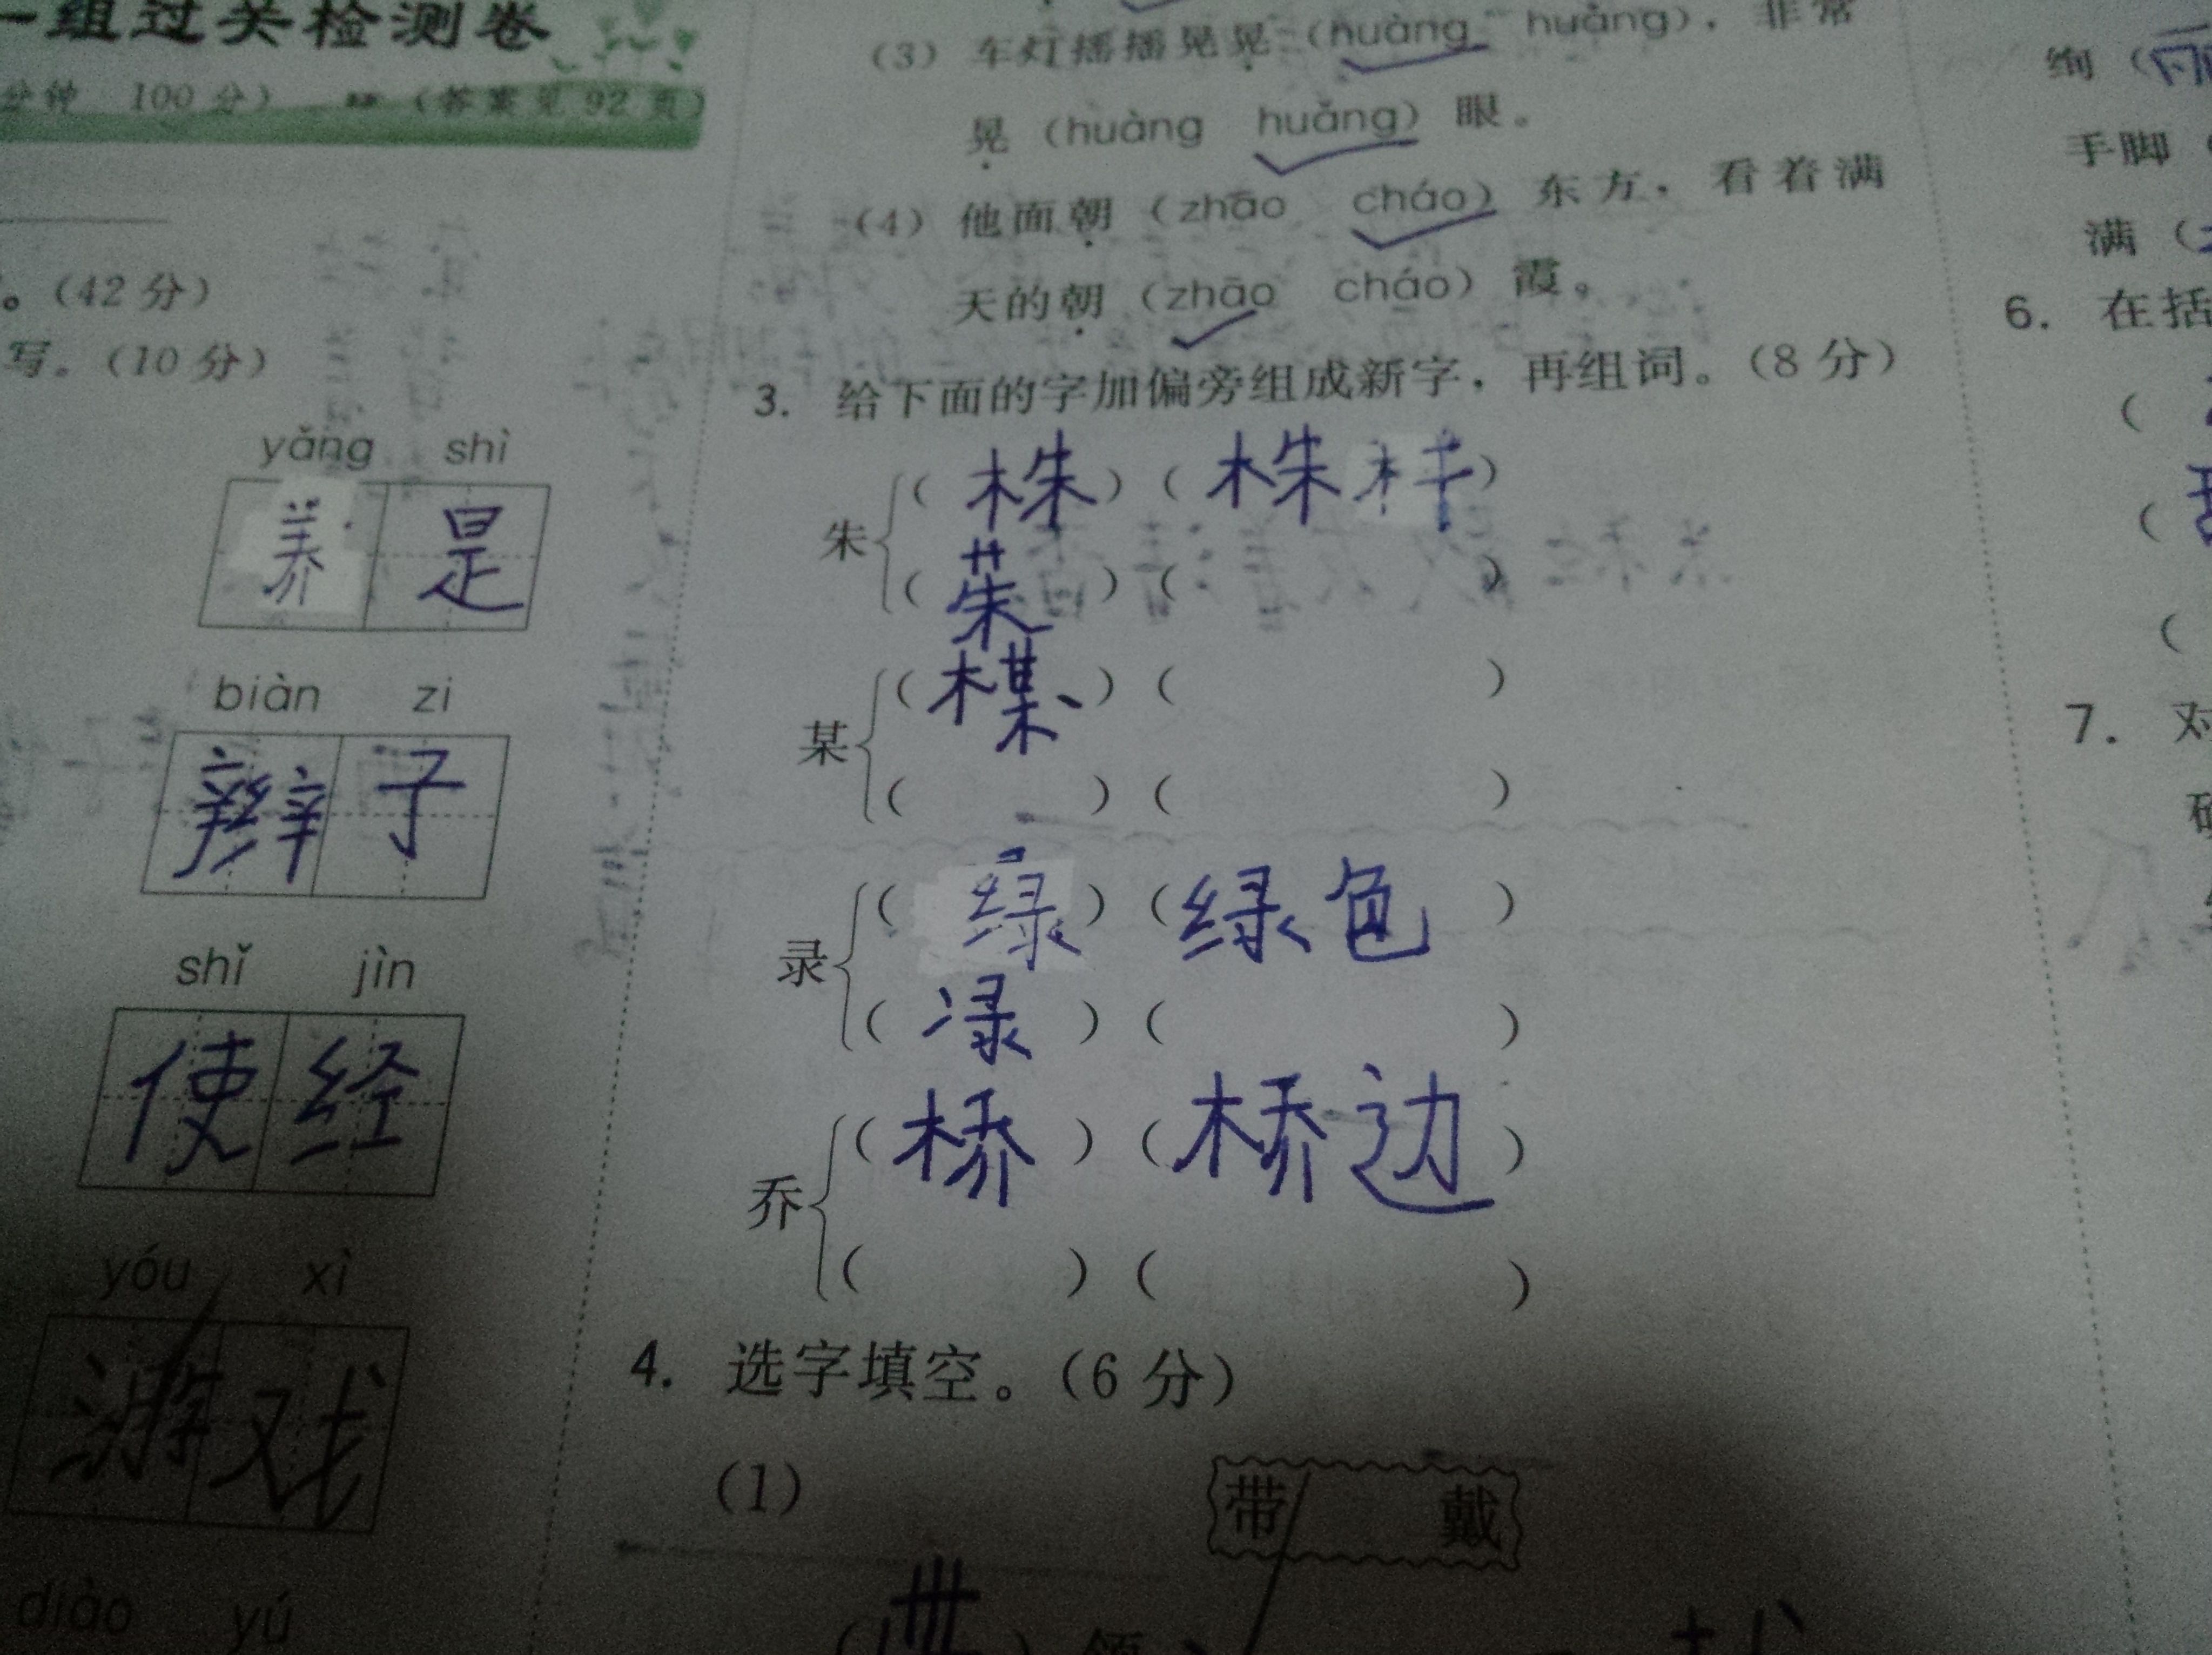 一组过关检测卷
分钟 100分） （答案见92页）
。（42分）
写。（10分）
yǎng shì
养 是
biàn zi
辫 子
shǐ jìn
使 经
yóu xì
游 戏
diào yú
（3）车灯摇摇晃晃（huàng huǎng），非常
晃（huàng huǎng）眼。
（4）他面朝（zhāo cháo）东方，看着满
天的朝（zhāo cháo）霞。
3. 给下面的字加偏旁组成新字，再组词。（8分）
朱
（株）（株）
（茱）（ ）
某
（楳）（ ）
（ ）（ ）
录
（绿）（绿色）
（渌）（ ）
乔
（桥）（桥边）
（ ）（ ）
4. 选字填空。（6分）
（1） 带 戴
绚（
手脚
满（
6. 在括
7. 对